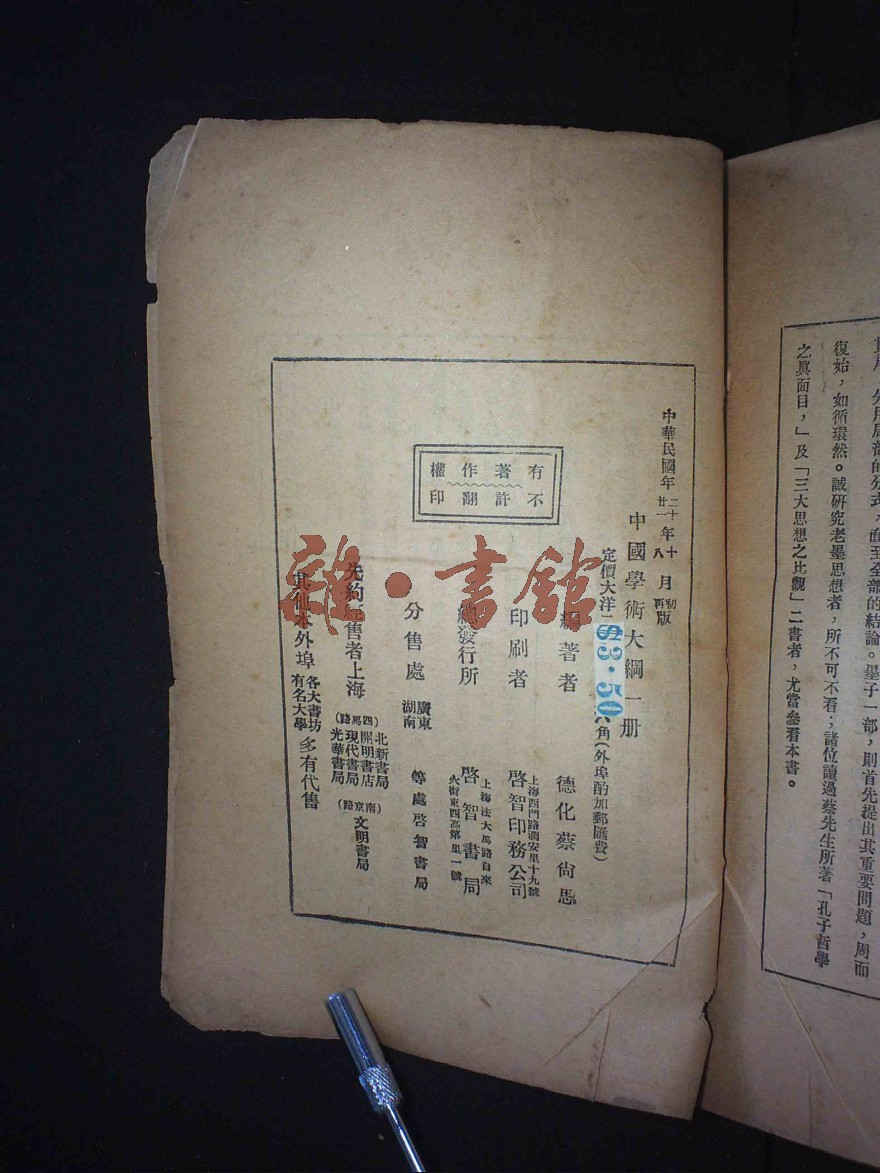 之眞面目,」及「三大思想之比觀」二書者,尤當參看本書。
復始,如循環然。誠研究老墨思想者,所不可不看;諸位讀過蔡先生所著「孔子哲學
部的分式,直至全部的結論。墨子一部,則首先提出其重要問題,周而
中華民國年二十年十月初版
廿一 八 再
中國學術大綱一册
定價大洋
$3.50
六角(外埠酌加郵匯費)
編著者 德化蔡尙思
印刷者 啓智印務公司
上海西門路潤安里十九號
總發行所 啓智書局
上海法大馬路自來
火街東四高第里一號
分售處 廣東 湖南 等處啓智書局
先約經售者上海
(四馬路)
北新書局
開明書店
現代書局
光華書局
(南京路)文明書局
其他本外埠 各大書坊 有名大學 多有代售
有著作權
不許翻印
雜·書館